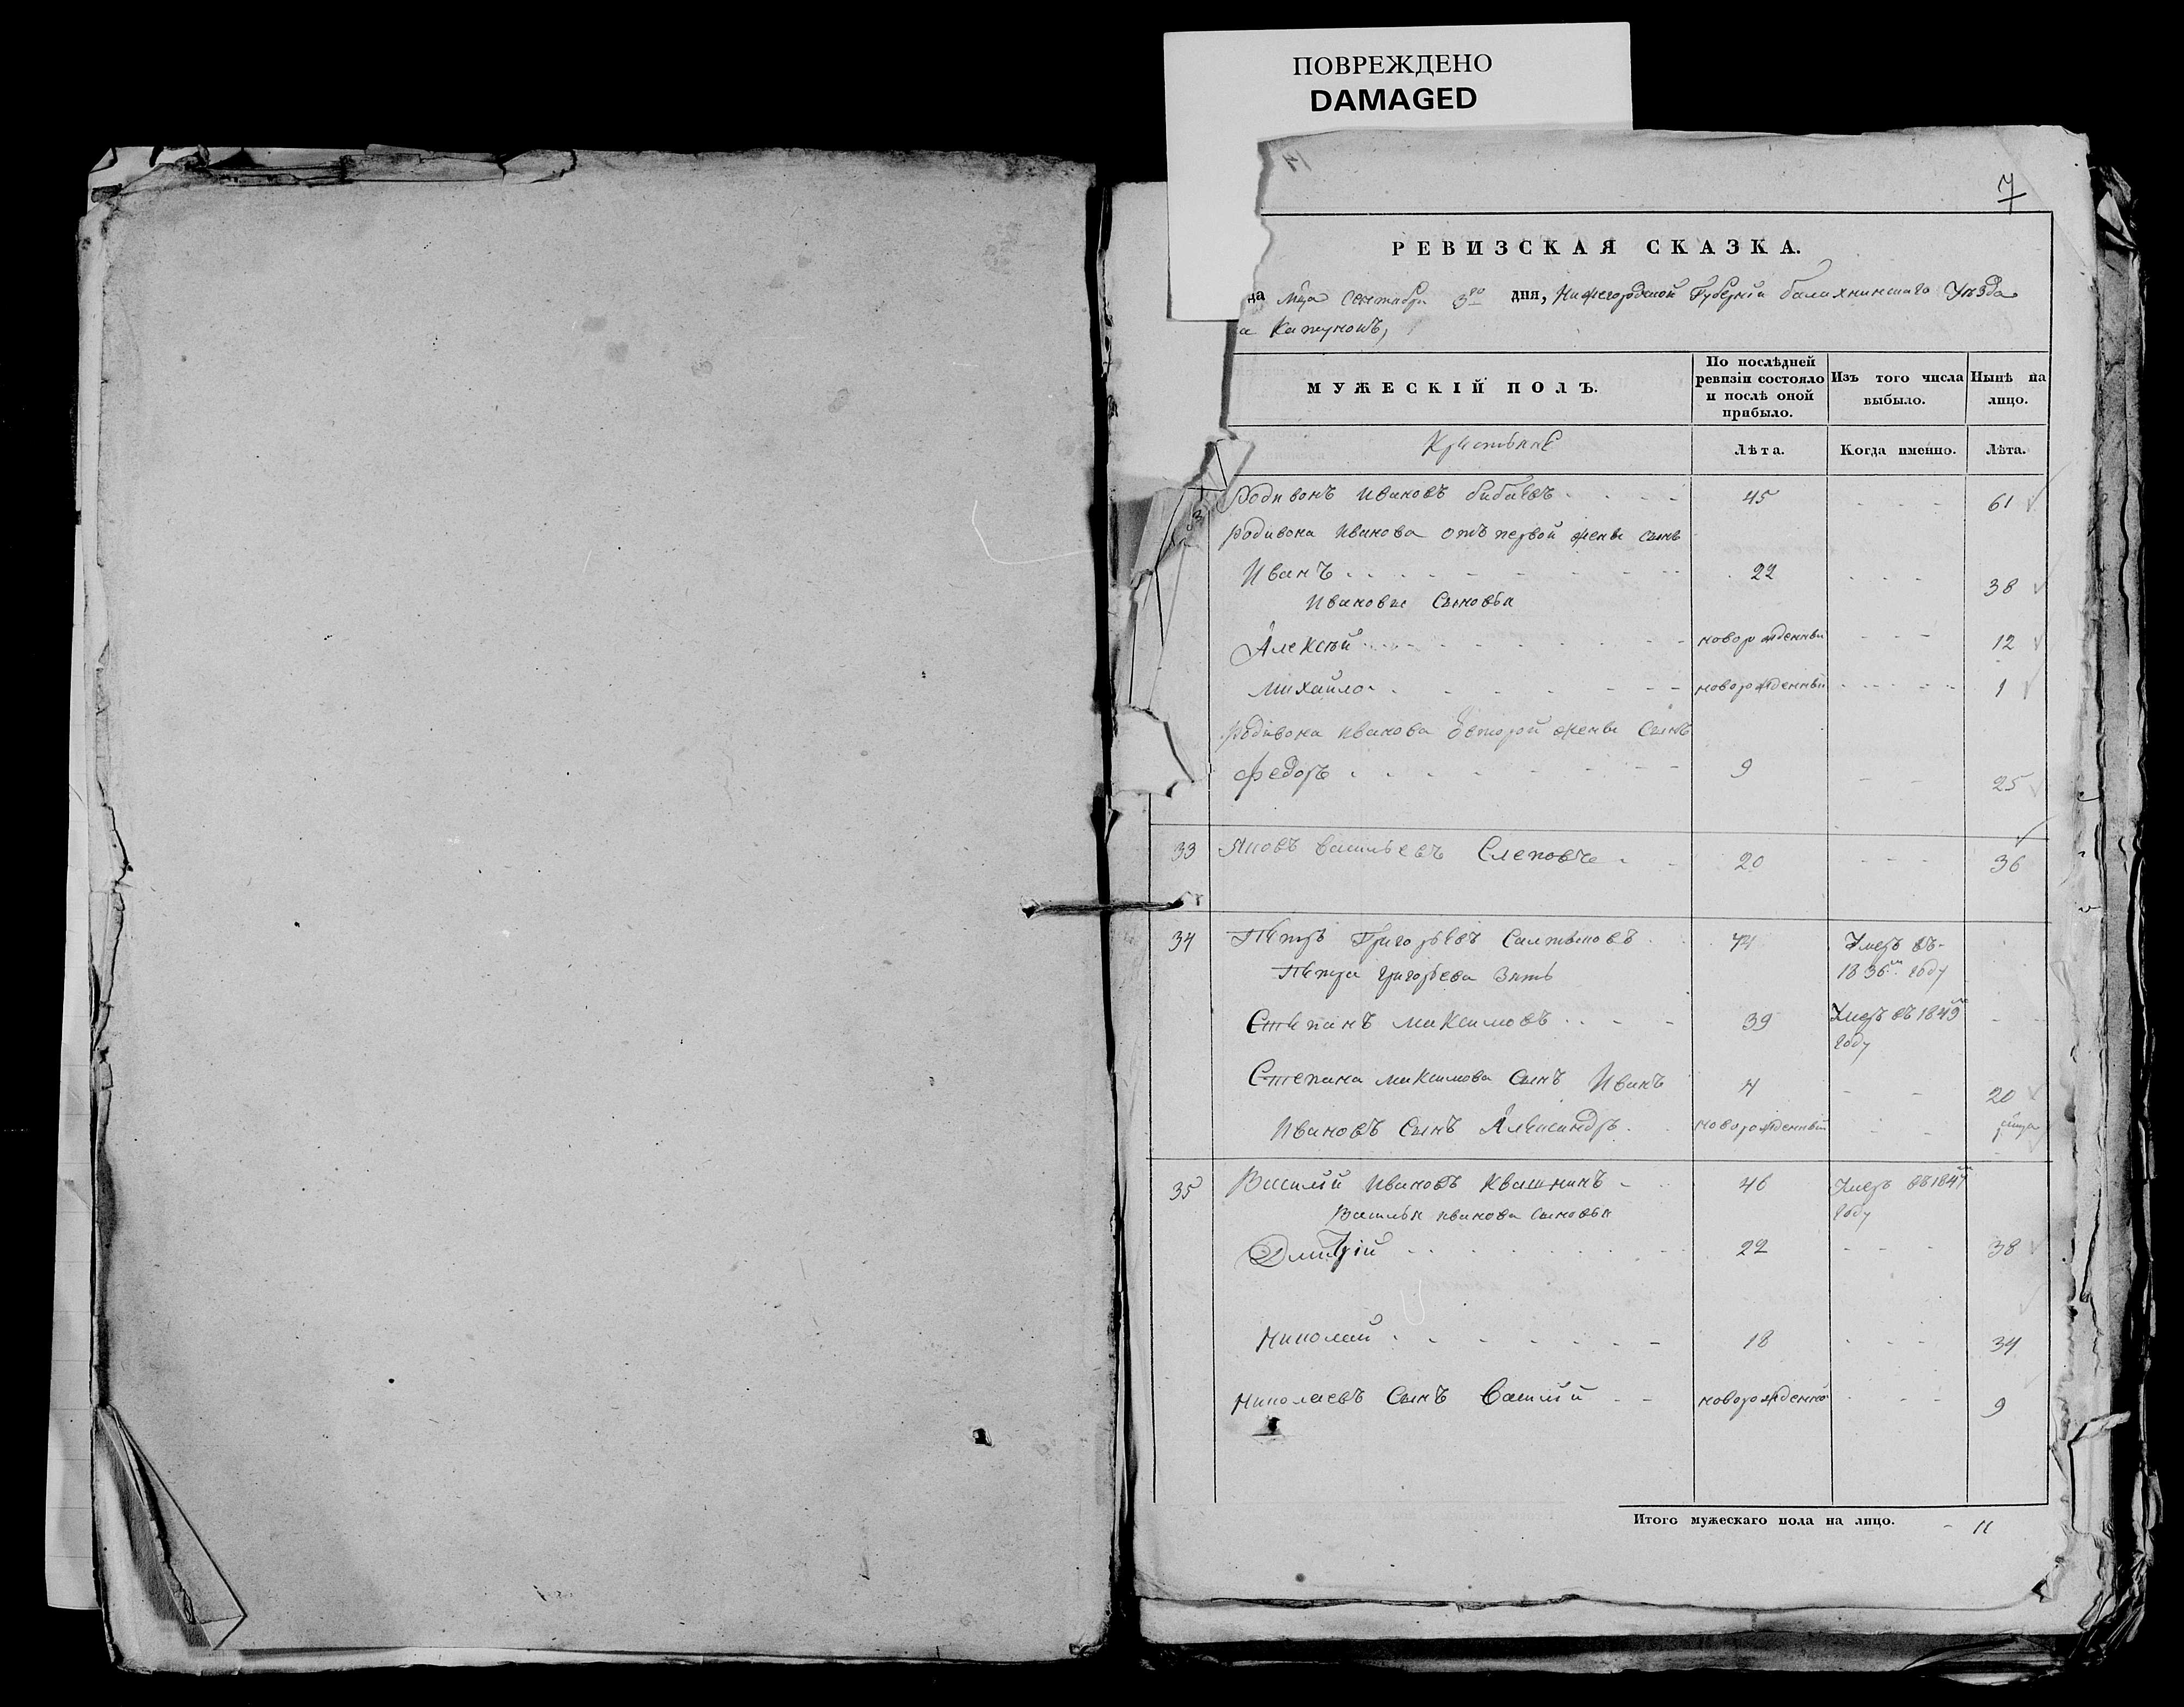 ПОВРЕЖДЕНО
DAMAGED
7
РЕВИЗСКАЯ СКАЗКА.
да Мца Сентября 3го дня, Нижегородской Губерніи балахнинскаго Уѣзда
а Катунокъ,
МУЖЕСКІЙ ПОЛЪ.
По послѣдней ревизіи состояло и послѣ оной прибыло.
Изъ того числа выбыло.
Нынѣ на лицо.
Крестьяне
Лѣта.
Когда именно.
Лѣта.
Родивонъ Ивановъ 45 61
Родивона Иванова отъ первой жены сынъ
Иванъ 22 38
Ивановы Сыновья
Алексѣй новорожденный 12
Михайло новорожденный 1
Родивона Иванова второй жены Сынъ
Федоръ 9 25
33 Яковъ Васильевъ 20 36
34 Петръ Григорьевъ Салтыковъ Умеръ въ
Петра Григорьева Зять 1836м году
Степанъ Максимовъ 39 Умеръ въ 1849м
году
Степана Максимова Сынъ Иванъ 4 20
Ивановъ Сынъ Александръ новорожденный
35 Василій Ивановъ Квашнинъ 46 Умеръ въ 1847м
Василья Иванова сыновья году
Дмитрій 22 38
Николай 18 34
Николаевъ Сынъ Василій новорожденной 9
Итого мужескаго пола на лицо. 11